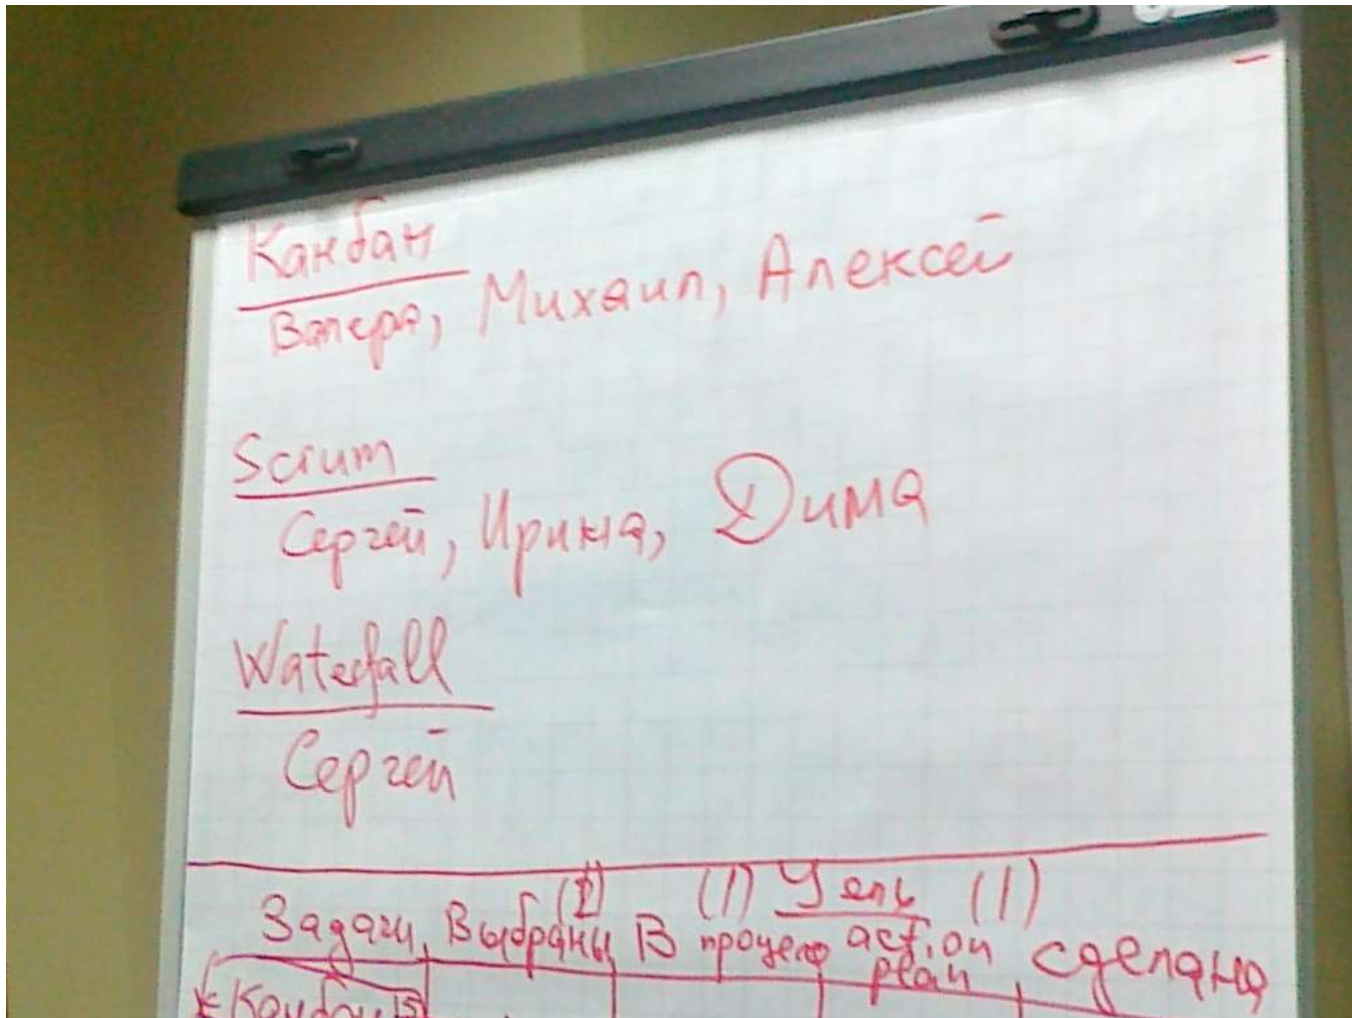 Канбан
Валера, Михаил, Алексей
Scrum
Сергей, Ирина, Дима
Waterfall
Сергей
(2) (1) Цель (1)
Задачи Выбраны В процессе action plan сделано
Канбан 15